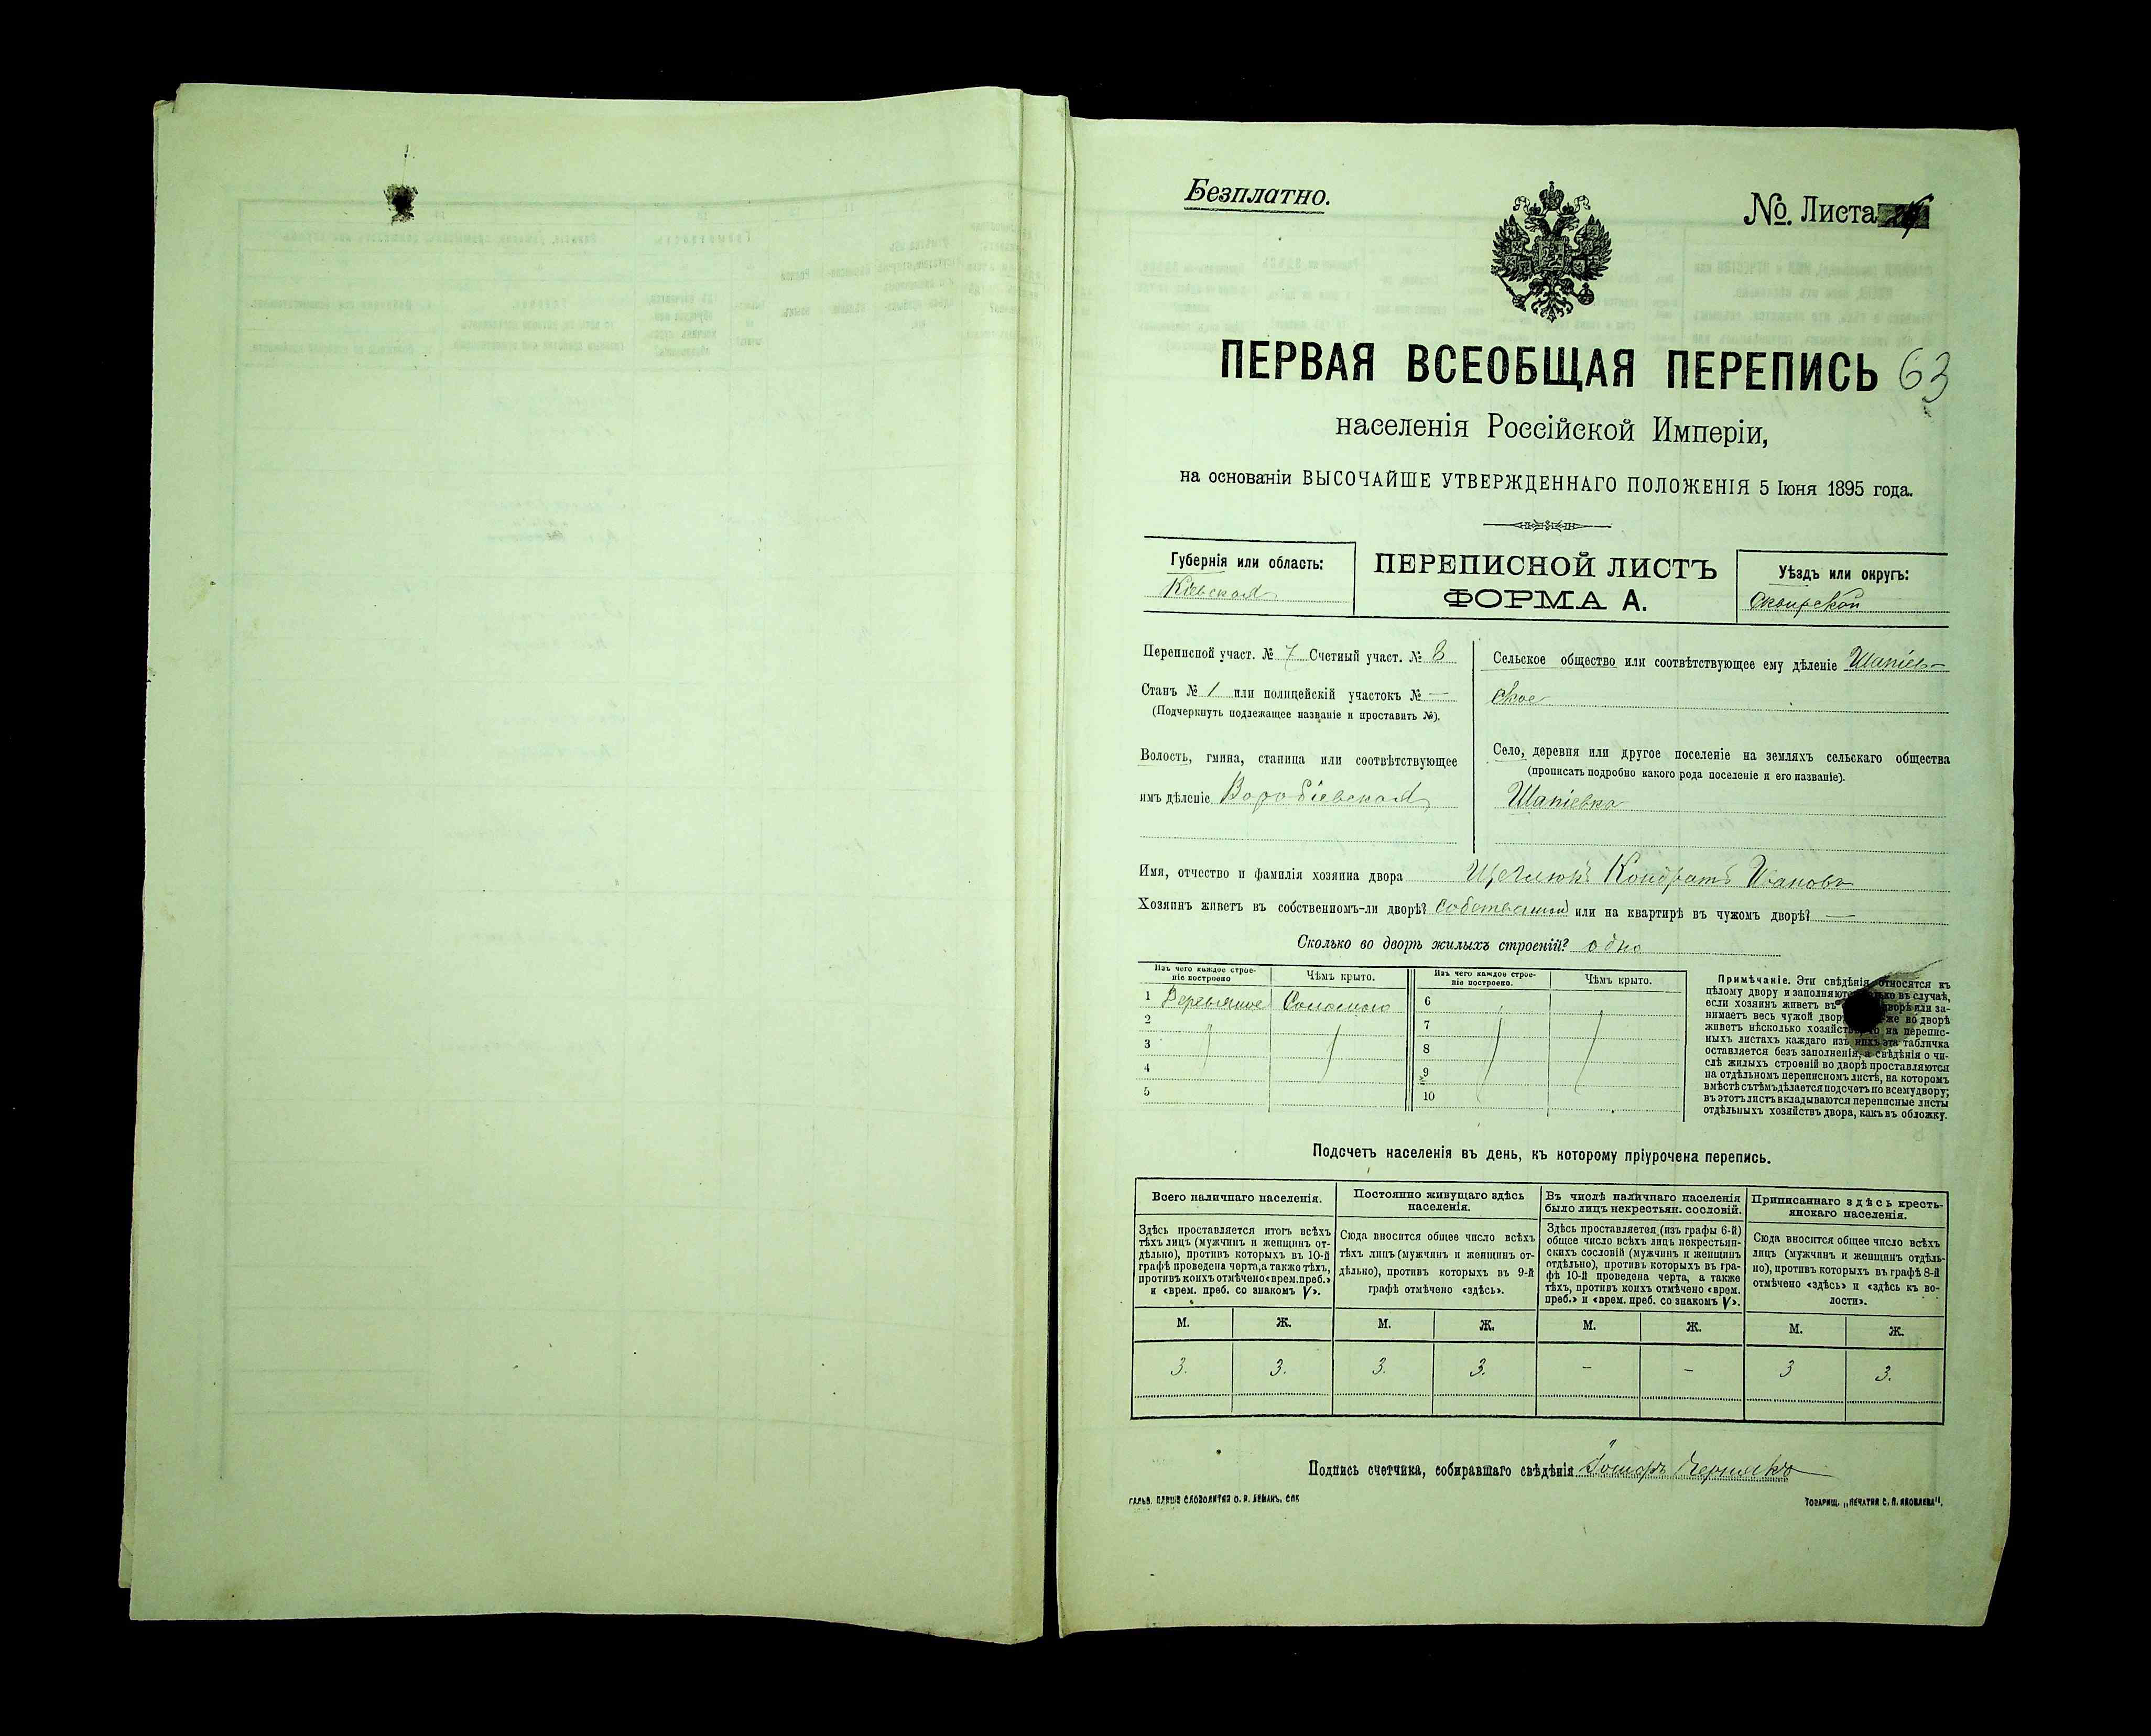 Безплатно.
№. Листа
ПЕРВАЯ ВСЕОБЩАЯ ПЕРЕПИСЬ 63
населенія Россійской Имперіи,
на основаніи ВЫСОЧАЙШЕ УТВЕРЖДЕННАГО ПОЛОЖЕНІЯ 5 Іюня 1895 года.
Губернія или область:
Кіевская
ПЕРЕПИСНОЙ ЛИСТЪ
ФОРМА А.
Уѣздъ или округъ:
Сквирской
Переписной участ. № 7 Счетный участ. № 8
Станъ № 1 или полицейскій участокъ № —
(Подчеркнуть подлежащее названіе и проставить №).
Волость, гмина, станица или соотвѣтствующее
имъ дѣленіе Воробіевская
Сельское общество или соотвѣтствующее ему дѣленіе Шапіев-
ское
Село, деревня или другое поселеніе на земляхъ сельскаго общества
(прописать подробно какого рода поселеніе и его названіе).
Шапіевка
Имя, отчество и фамилія хозяина двора Кондратъ Ивановъ
Хозяинъ живетъ въ собственномъ-ли дворѣ? собственном или на квартирѣ въ чужомъ дворѣ? —
Сколько во дворѣ жилыхъ строеній? одно
Изъ чего каждое строе-
ніе построено
Чѣмъ крыто.
Изъ чего каждое строе-
ніе построено.
Чѣмъ крыто.
1 Деревянное Соломою
2
3
4
5
6
7
8
9
10
Примѣчаніе. Эти свѣдѣнія относятся къ
цѣлому двору и заполняются только въ случаѣ,
если хозяинъ живетъ въ дворѣ или за-
нимаетъ весь чужой дворъ же во дворѣ
живетъ нѣсколько хозяйствъ, то на перепис-
ныхъ листахъ каждаго изъ нихъ эта табличка
оставляется безъ заполненія, а свѣдѣнія о чи-
слѣ жилыхъ строеній во дворѣ проставляются
на отдѣльномъ переписномъ листѣ, на которомъ
вмѣстѣ съ тѣмъ дѣлается подсчетъ по всему двору;
въ этотъ листъ вкладываются переписные листы
отдѣльныхъ хозяйствъ двора, какъ въ обложку.
Подсчетъ населенія въ день, къ которому пріурочена перепись.
Всего наличнаго населенія.
Здѣсь проставляется итогъ всѣхъ
тѣхъ лицъ (мужчинъ и женщинъ от-
дѣльно), противъ которыхъ въ 10-й
графѣ проведена черта, а также тѣхъ,
противъ коихъ отмѣчено «врем. преб.»
и «врем. преб. со знакомъ V».
Постоянно живущаго здѣсь
населенія.
Сюда вносится общее число всѣхъ
тѣхъ лицъ (мужчинъ и женщинъ от-
дѣльно), противъ которыхъ въ 9-й
графѣ отмѣчено «здѣсь».
Въ числѣ наличнаго населенія
было лицъ некрестьян. сословій.
Здѣсь проставляется (изъ графы 6-й)
общее число всѣхъ лицъ некрестьян-
скихъ сословій (мужчинъ и женщинъ
отдѣльно), противъ которыхъ въ гра-
фѣ 10-й проведена черта, а также
тѣхъ, противъ коихъ отмѣчено «врем.
преб.» и «врем. преб. со знакомъ V».
Приписаннаго здѣсь кресть-
янскаго населенія.
Сюда вносится общее число всѣхъ
лицъ (мужчинъ и женщинъ отдѣль-
но), противъ которыхъ въ графѣ 8-й
отмѣчено «здѣсь» и «здѣсь къ во-
лости».
М. Ж. М. Ж. М. Ж. М. Ж.
3. 3. 3. 3. - - 3 3.
Подпись счетчика, собиравшаго свѣдѣнія
ГАЛЬВ. КЛИШЕ СЛОВОЛИТНЯ О. И. ЛЕМАНЪ, СПБ
ТОВАРИЩ. „ПЕЧАТНЯ С. П. ЯКОВЛЕВА".